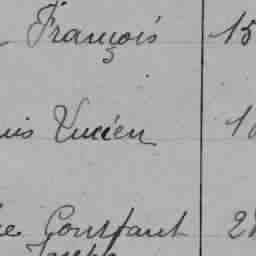 François 15
uis Lucien 1
e Constant 2
Joseph